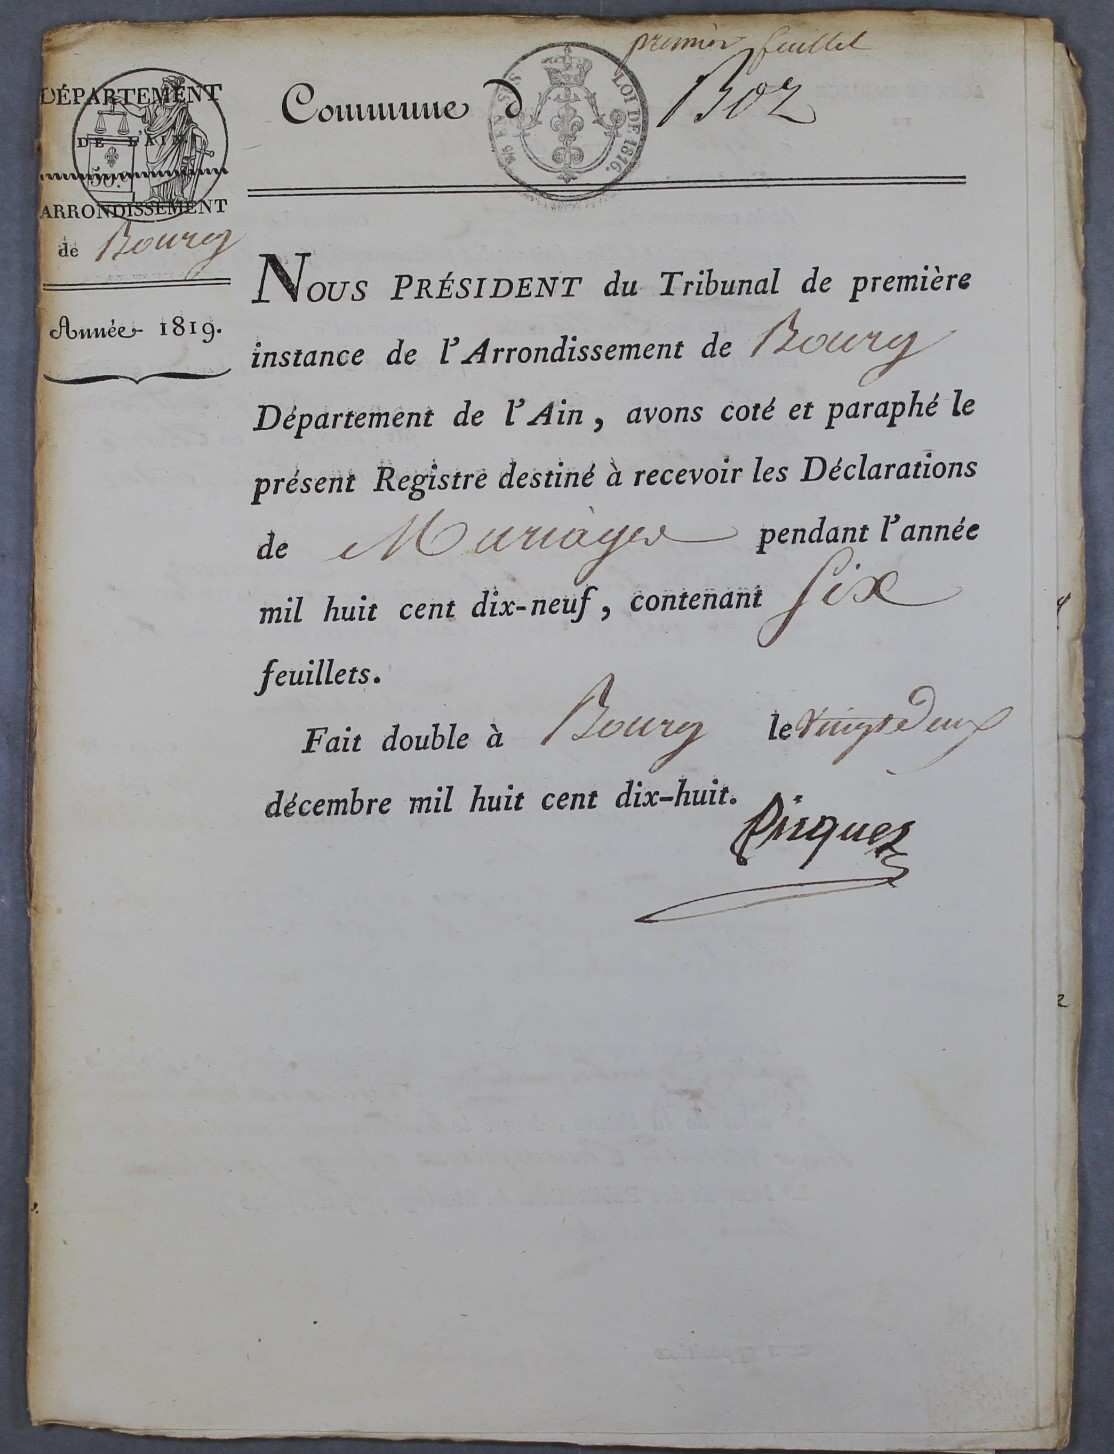 premier feuillet
DÉPARTEMENT
DE L'AIN
50.
ARRONDISSEMENT
de Bourg
Année 1819.
Commune d Boz
LOI DE 1816.
NOUS PRÉSIDENT du Tribunal de première
instance de l'Arrondissement de Bourg
Département de l'Ain, avons coté et paraphé le
présent Registre destiné à recevoir les Déclarations
de Mariages pendant l'année
mil huit cent dix-neuf, contenant Six
feuillets.
Fait double à Bourg le vingt deux
décembre mil huit cent dix-huit.